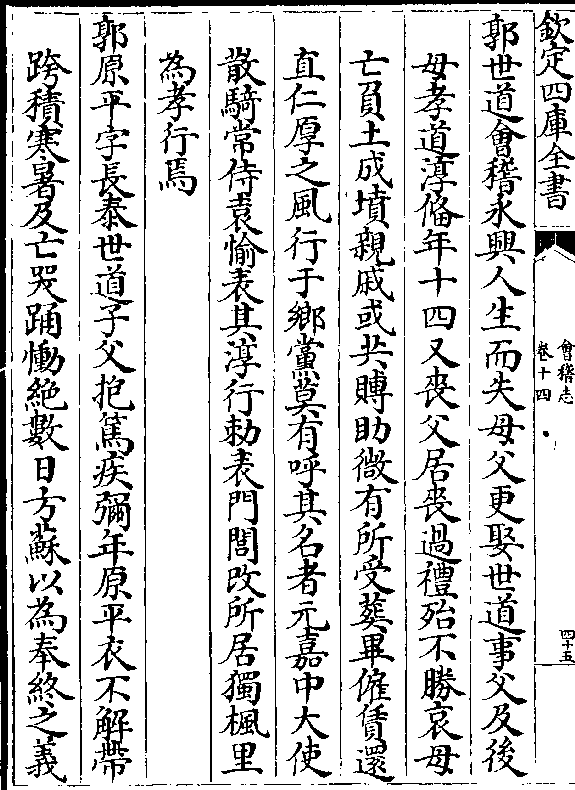 欽定四庫全書
會稽志
卷十四
四十五
郭世道會稽永興人生而失母父更娶世道事父及後
母孝道淳俻年十四又喪父居喪過禮殆不勝哀母
亡負土成墳親戚或共賻助微有所受葬畢傭賃還
直仁厚之風行于鄉黨莫有呼其名者元嘉中大使
散騎常侍袁愉表其淳行勅表門閭改所居獨楓里
為孝行焉
郭原平字長泰世道子父抱篤疾彌年原平衣不解帶
跨積寒暑及亡哭踊慟絶數日方蘇以為奉終之義